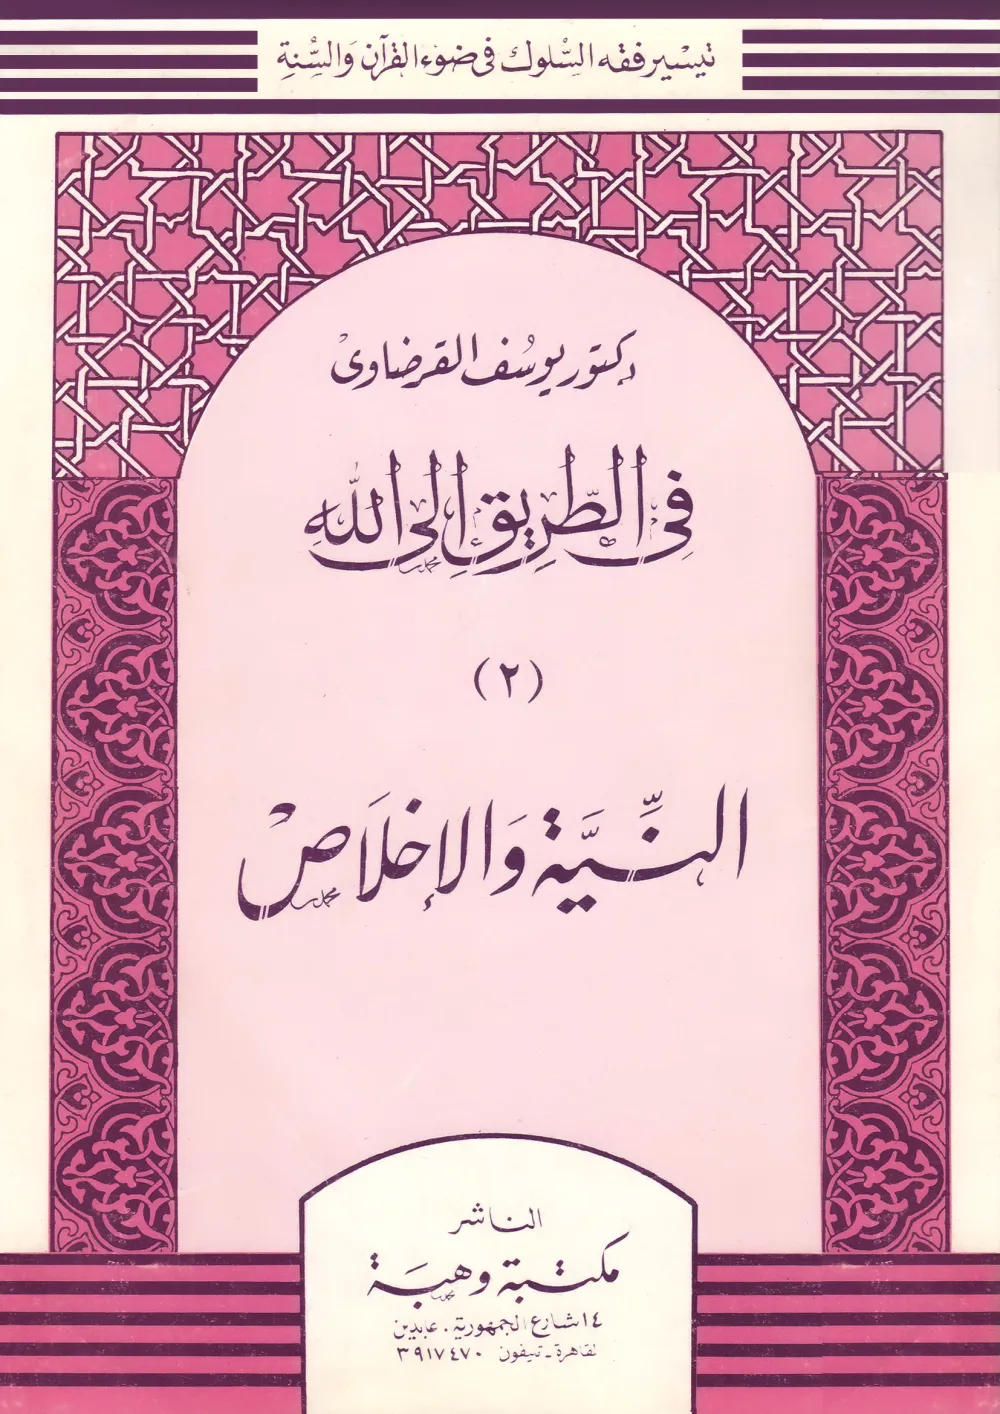 تيسير فقه السلوك في ضوء القرآن والسنة
دكتور يوسف القرضاوى
فِى الطَّرِيقِ إِلَى اللهِ
(٢)
النِّيَّة وَالإِخلَاص
الناشر
مكتبة وهبَة
١٤ شارع الجمهورية . عابدين
لقاهرة - تليفون ٣٩١٧٤٧٠